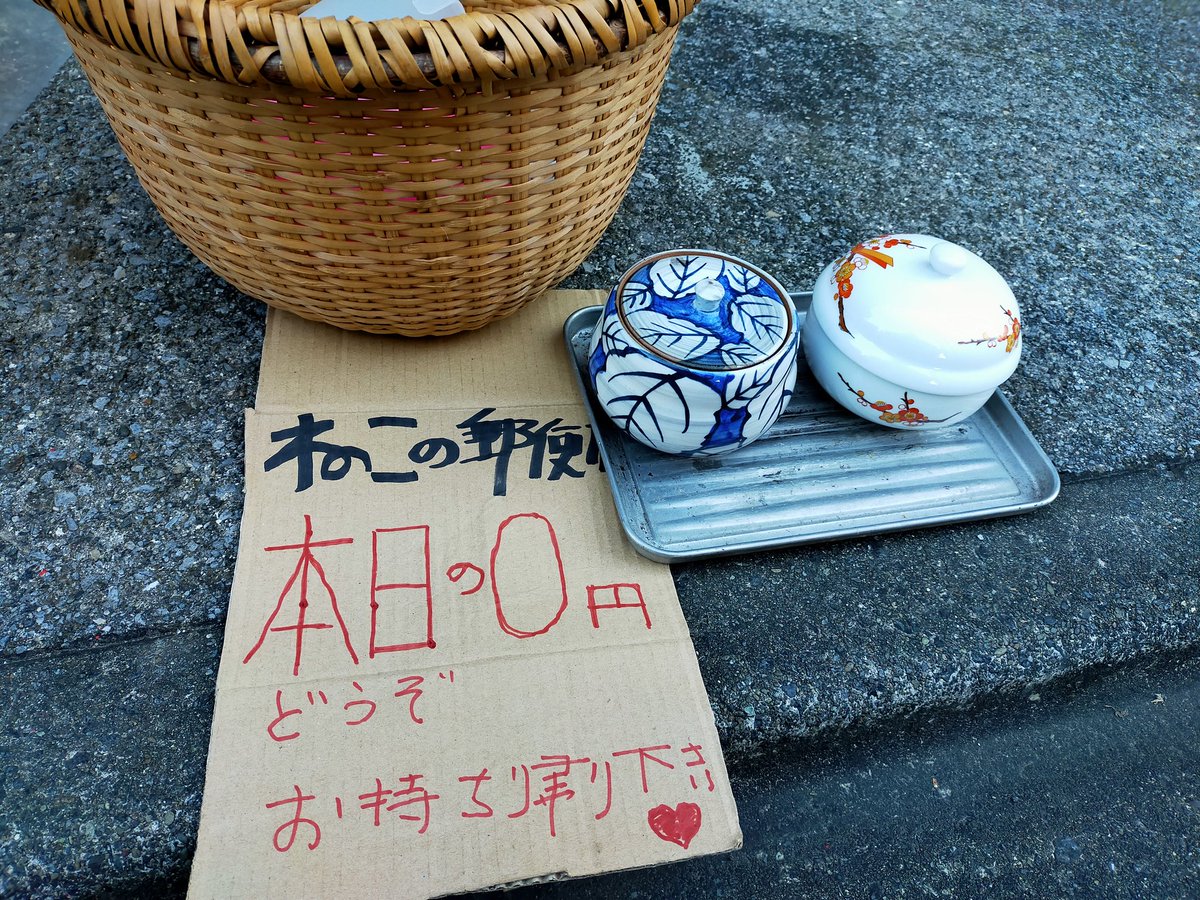 ねこの郵便
本日の0円
どうぞ
お持ち帰り下さい